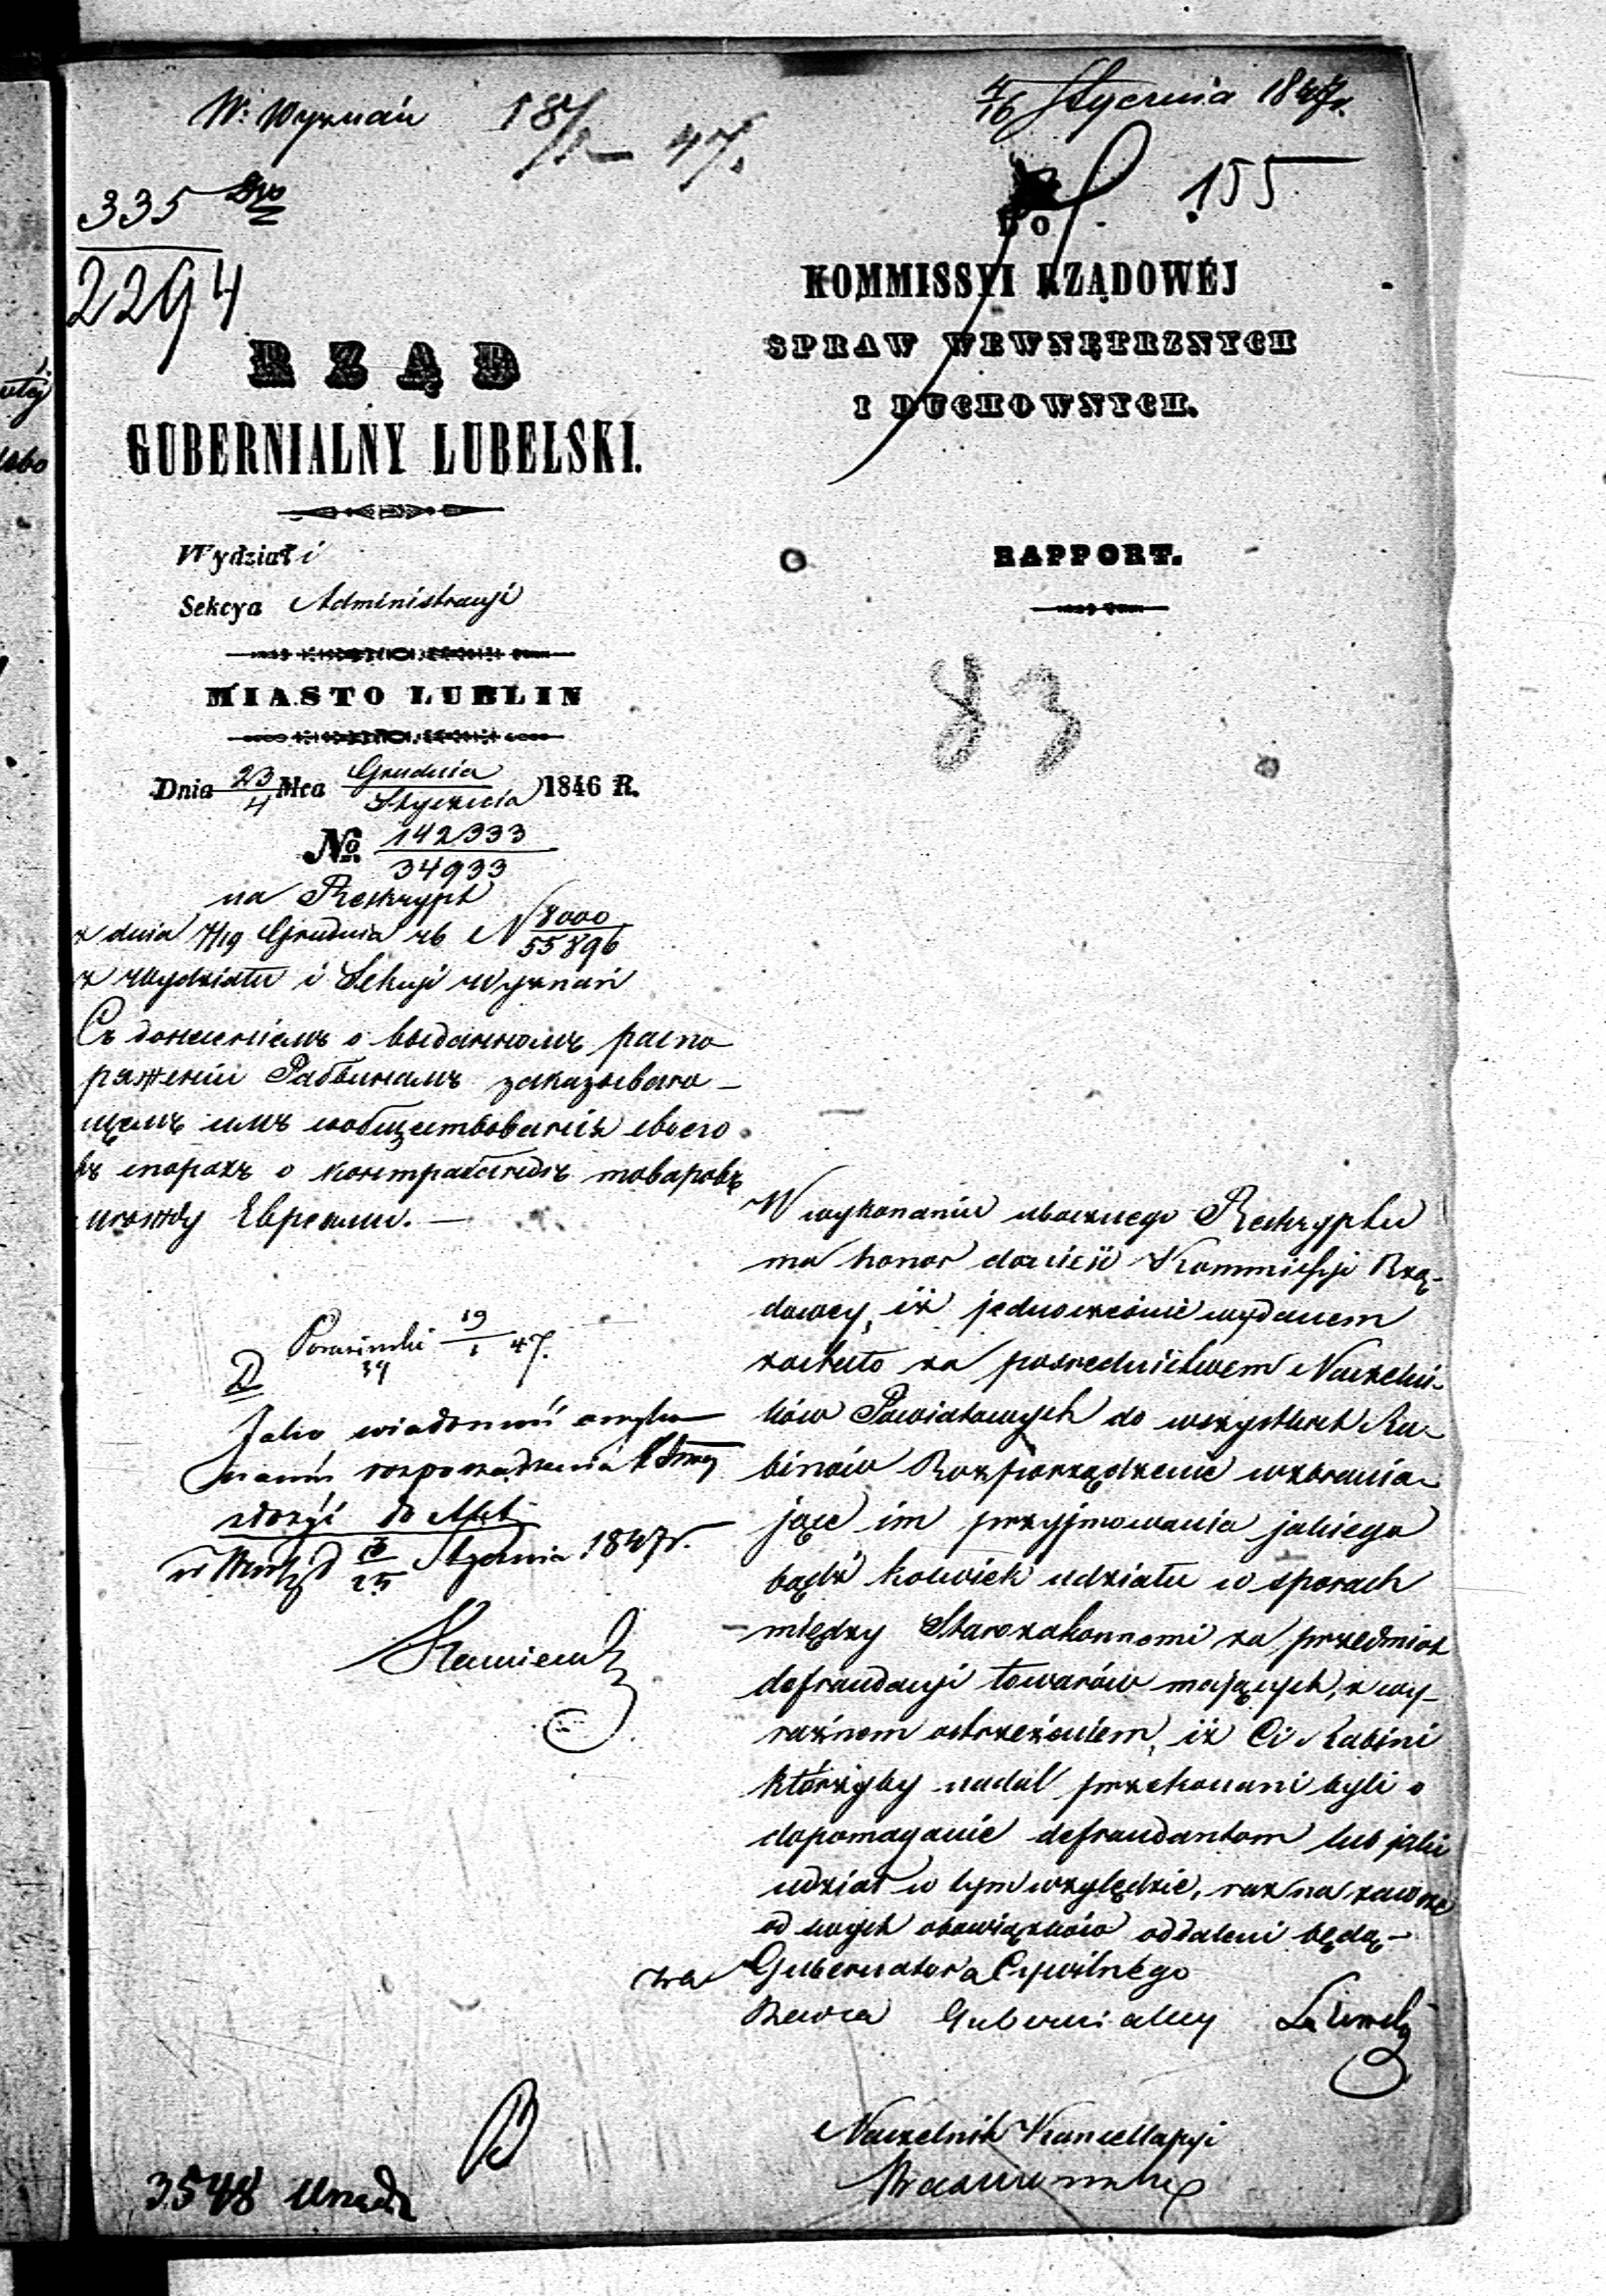 W: Wyznań
187/1 47.
4/16 Stycznia 1847 r.
155
335
2294
Do
KOMMISSYI RZĄDOWÉJ
SPRAW WEWNĘTRZNYCH
I DUCHOWNYCH.
RAPPORT.
83
RZĄD
GUBERNIALNY LUBELSKI.
Wydział i
Sekcya Administracyi
MIASTO LUBLIN
Dnia 23/4 Mca Grudnia/Stycznia 1846 R.
No. 142333/34933
na Reskrypt
z dnia 7/19 Grudnia rb N 8000/55896
z Wydziału i Sekcyi Wyznań
Съ донесеніемъ о выданномъ распо
ряженіи Раввинамъ
имъ своего
въ спорахъ о товаровъ
между Евреями.—
19/1 47.
Jako wiadomość o
rozporządzenia
złożyć do Akt
Stycznia 1847 r.
W wykonaniu ubocznego Reskryptu
ma honor donieść Kommissyi Rzą-
dowey, iż jednocześnie wydanem
zostało za pośrednictwem Naczelni-
ków Powiatowych do wszystkich Ra-
binów Rozporządzenie wzbrania-
jące im przyjmowania jakiego
bądź kolwiek udziału w sporach
między Starozakonnemi za przedmiot
defraudacyi towarów mających, z wy-
raźnem ostrzeżeniem, iż Ci Rabini
którzyby nadal przekonani byli o
dopomaganie defraudantom lub jaki
udział w tym względzie, raz na zawsze
od swych obowiązków oddaleni będą.—
za Gubernatora Cywilnego
Radca Gubernialny
Naczelnik Kancellaryi
3548